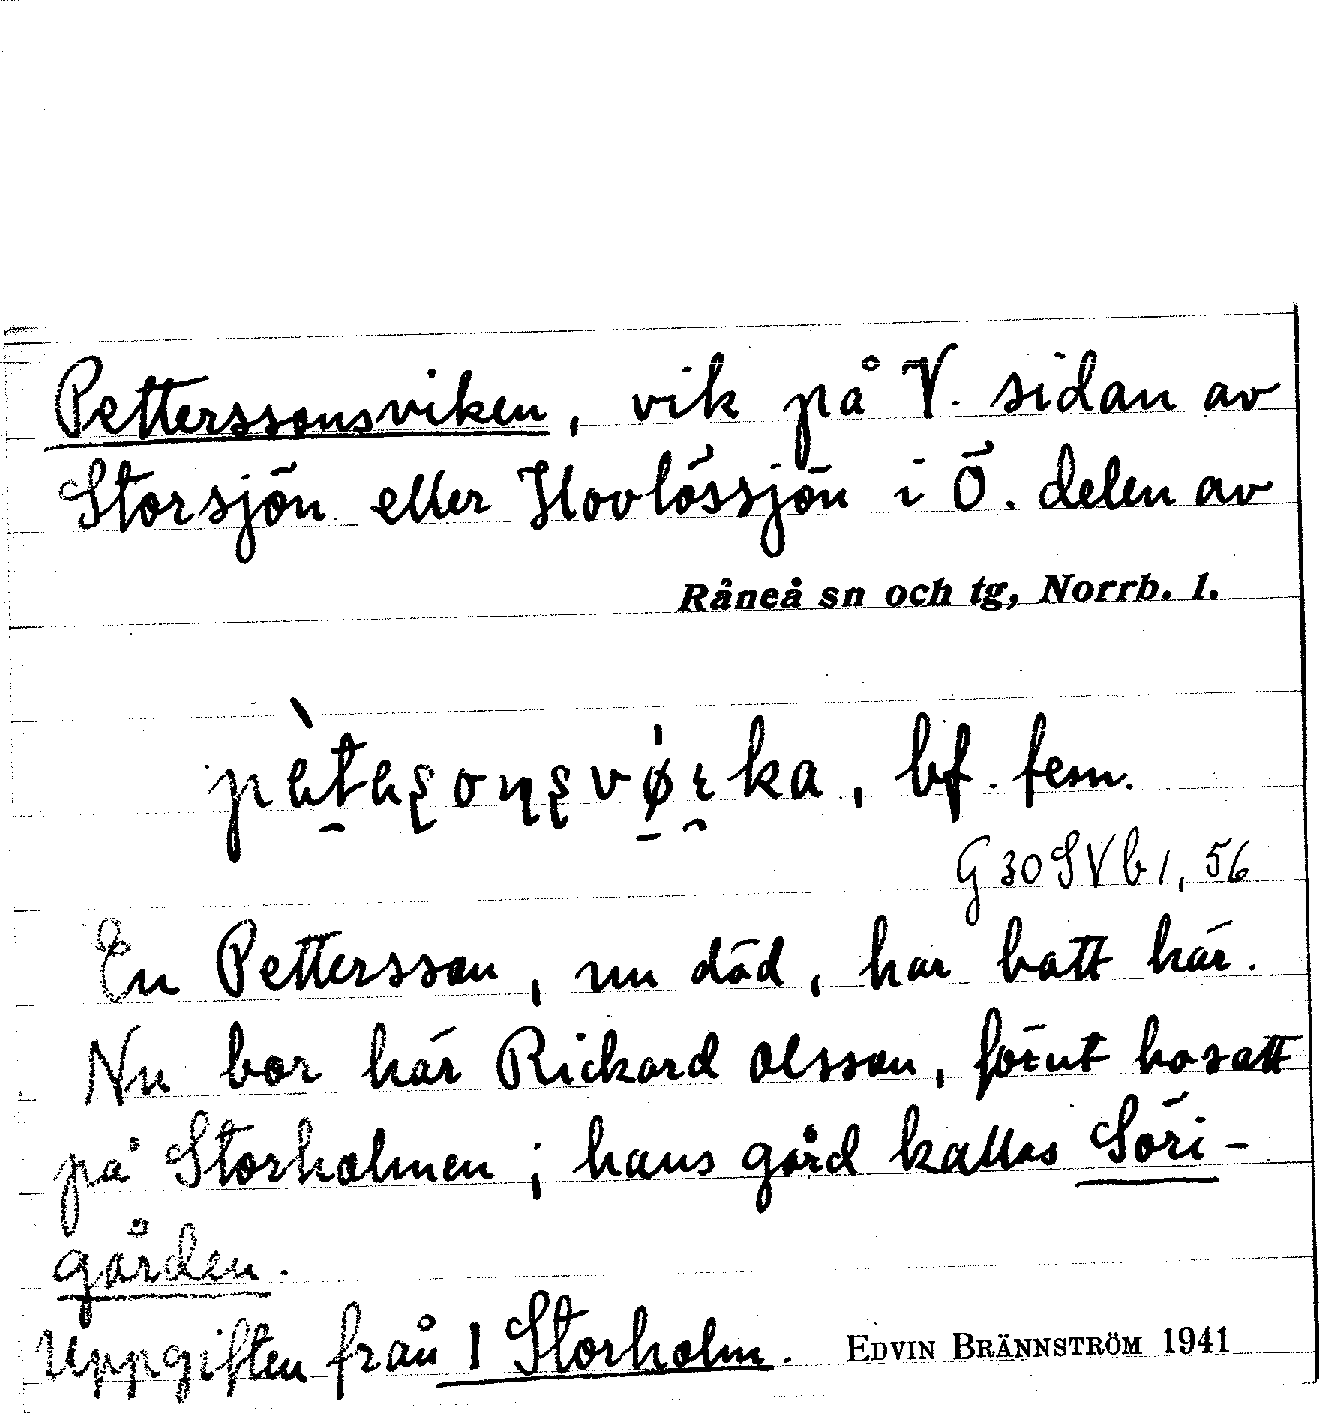 Petterssonsviken, vik på V. sidan av
Storsjön eller Hovlössjön i Ö. delen av
Råneå sn och tg, Norrb. l.
bf. fem.
G 30 S V b 1, 56
En Pettersson, nu död, har bott här.
Nu bor här Rickard Olsson, förut bosatt
på Storholmen; hans gård kallas Söri-
gården.
Uppgiften från 1 Storholm. EDVIN BRÄNNSTRÖM 1941